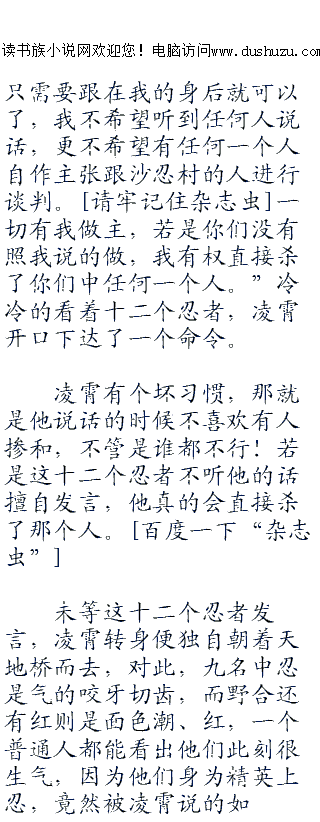 读书族小说网欢迎您！电脑访问www.dushuzu.com
只需要跟在我的身后就可以
了，我不希望听到任何人说
话，更不希望有任何一个人
自作主张跟沙忍村的人进行
谈判。[请牢记住杂志虫]一
切有我做主，若是你们没有
照我说的做，我有权直接杀
了你们中任何一个人。”冷
冷的看着十二个忍者，凌霄
开口下达了一个命令。
凌霄有个坏习惯，那就
是他说话的时候不喜欢有人
掺和，不管是谁都不行！若
是这十二个忍者不听他的话
擅自发言，他真的会直接杀
了那个人。[百度一下“杂志
虫”]
未等这十二个忍者发
言，凌霄转身便独自朝着天
地桥而去，对此，九名中忍
是气的咬牙切齿，而野合还
有红则是面色潮、红，一个
普通人都能看出他们此刻很
生气，因为他们身为精英上
忍，竟然被凌霄说的如